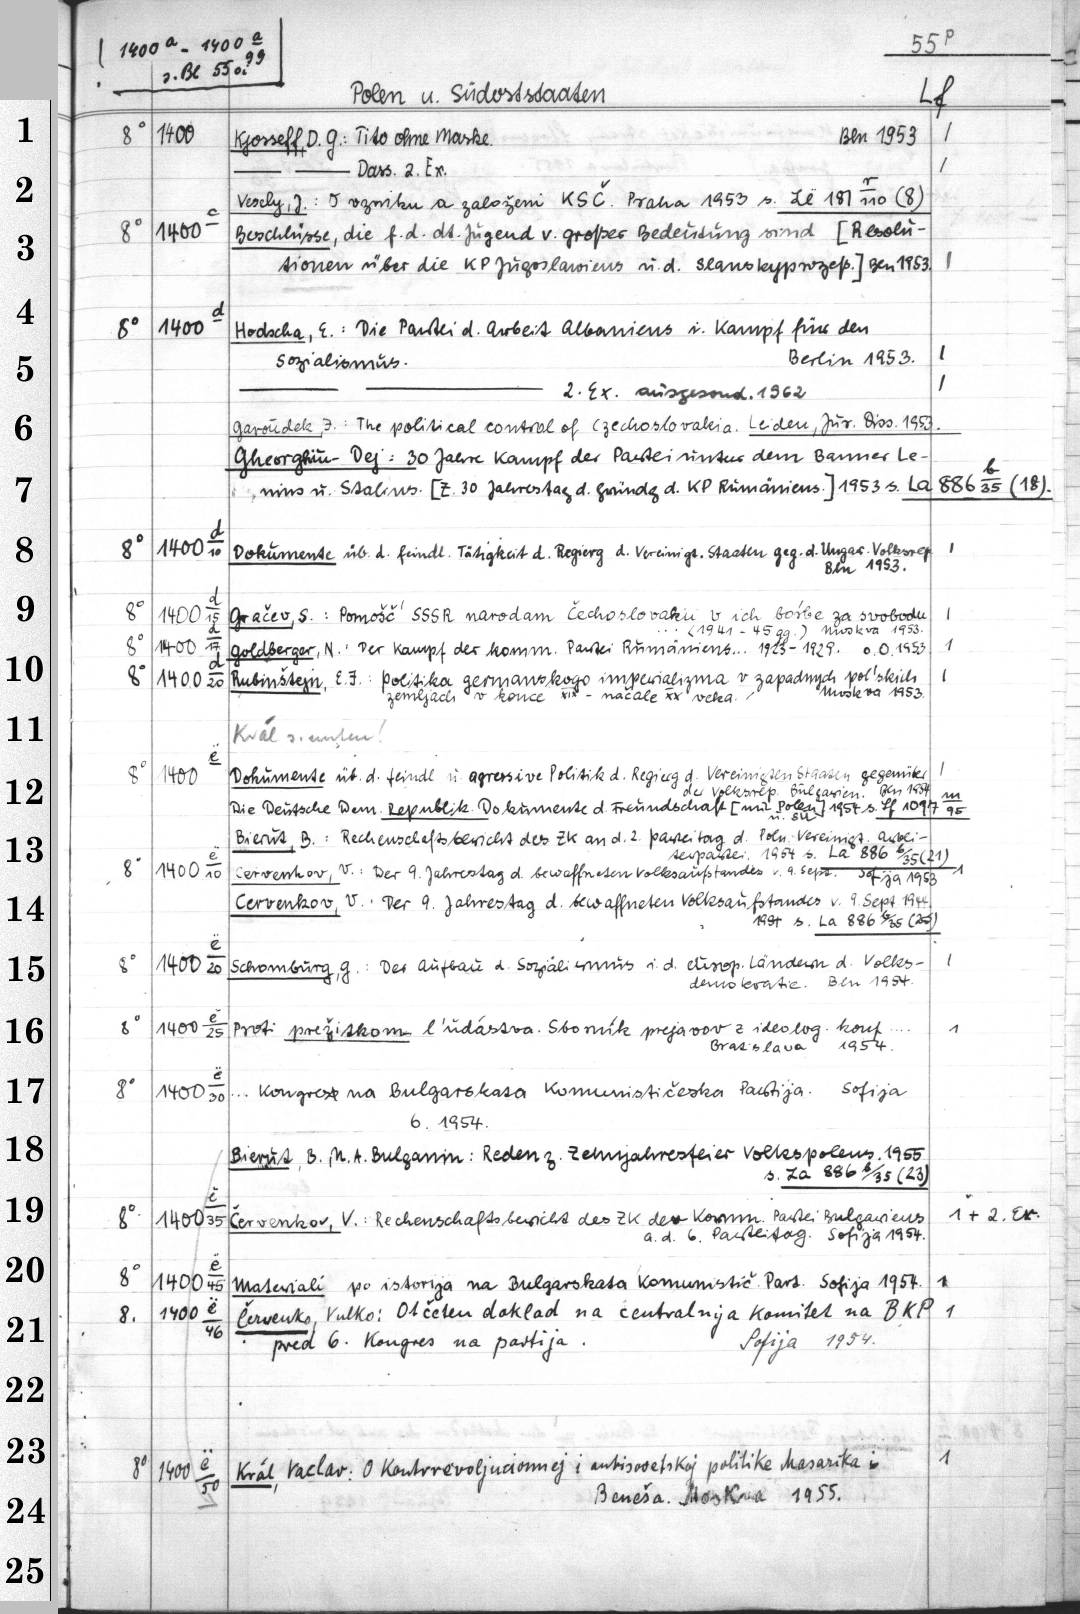 1400 a - 1400 a/99
s. Bl 55 oi
55 P
Polen u. Südoststaaten Lf
1 8° 1400 Kjosseff, D. G.: Tito ohne Maske. Bln 1953 1
—— —— Dass. 2. Ex. 1
2 Vesely, J.: O vzniku a založeni KSČ. Praha 1953 s. Zë 187 r/110 (8)
8° 1400 c Beschlüsse, die f. d. dt. Jugend v. großer Bedeutung sind [Resolu-
3 tionen über die KP Jugoslawiens u. d. Slanskyprozeß.] Bln 1953. 1
4 8° 1400 d Hodscha, E.: Die Partei d. Arbeit Albaniens i. Kampf für den
5 Sozialismus. Berlin 1953. 1
—— —— 2. Ex. ausgesond. 1962 1
6 Garoudek, J.: The political control of Czechoslovakia. Leiden, Jur. Diss. 1953.
Gheorghiu-Dej: 30 Jahre Kampf der Partei unter dem Banner Le-
7 nins u. Stalins. [Z. 30 Jahrestag d. Gründg d. KP Rumäniens.] 1953 s. La 886 b/35 (18).
8 8° 1400 d/10 Dokumente üb. d. feindl. Tätigkeit d. Regierg d. Vereinigt. Staaten geg. d. Ungar. Volksrep.
Bln 1953. 1
9 8° 1400 d/15 Gračev, S.: Pomošč' SSSR narodam Čechoslovakii v ich borbe za svobodu 1
... (1941-45 gg.) Moskva 1953.
8° 1400 d/17 Goldberger, N.: Der Kampf der komm. Partei Rumäniens... 1923-1929. o. O. 1953 1
10 8° 1400 d/20 Rubinštejn, E. I.: politika germanskogo imperializma v zapadnych pol'skich 1
zemljach v konce XIX - načale XX veka. Moskva 1953.
11 Král s. unten!
8° 1400 ë Dokumente üb. d. feindl. u. agressive Politik d. Regierg d. Vereinigten Staaten gegenüber 1
12 der Volksrep. Bulgarien. Bln 1954
Die Deutsche Dem. Republik. Dokumente d. Freundschaft [mit Polen] 1954 s. Lf 1097 m/95
u. SU
13 Bierut, B.: Rechenschaftsbericht des ZK an d. 2. Parteitag d. Poln. Vereinigt. Arbei-
terpartei. 1954 s. La 886 b/35 (21)
8° 1400 ë/10 Cervenkov, V.: Der 9. Jahrestag d. bewaffneten Volksaufstandes v. 9. Sept. Sofija 1953 1
14 Cervenkov, V. Der 9. Jahrestag d. bewaffneten Volksaufstandes v. 9. Sept 1944
1954 s. La 886 b/35 (25)
15 8° 1400 ë/20 Schomburg, G.: Der Aufbau d. Sozialismus i. d. europ. Ländern d. Volks- 1
demokratie. Bln 1954.
16 8° 1400 ë/25 Proti prežitkom l'udástva. Sborník prejavov z ideolog. konf .... 1
Bratislava 1954.
17 8° 1400 ë/30 ... Kongres na Bulgarskata Komunističeska Partija. Sofija
6. 1954.
18 Bierut, B., N. A. Bulganin: Reden z. Zehnjahresfeier Volkspolens. 1955
s. La 886 b/35 (23)
19 8° 1400 ë/35 Červenkov, V.: Rechenschaftsbericht des ZK der Komm. Partei Bulgariens 1 + 2. Ex.
a. d. 6. Parteitag. Sofija 1954.
20 8° 1400 ë/45 Materiali po istorija na Bulgarskata Komunistič. Part. Sofija 1954. 1
21 8. 1400 ë/46 Červenko, Vulko: Otčeten doklad na centralnija Komitet na BKP 1
pred 6. Kongres na partija. Sofija 1954.
22
23 8° 1400 ë/50 Král, Vaclav: O Kontrrevoljucionnej i antisovetskoj politike Masarika i 1
24 Beneša. Moskva 1955.
25